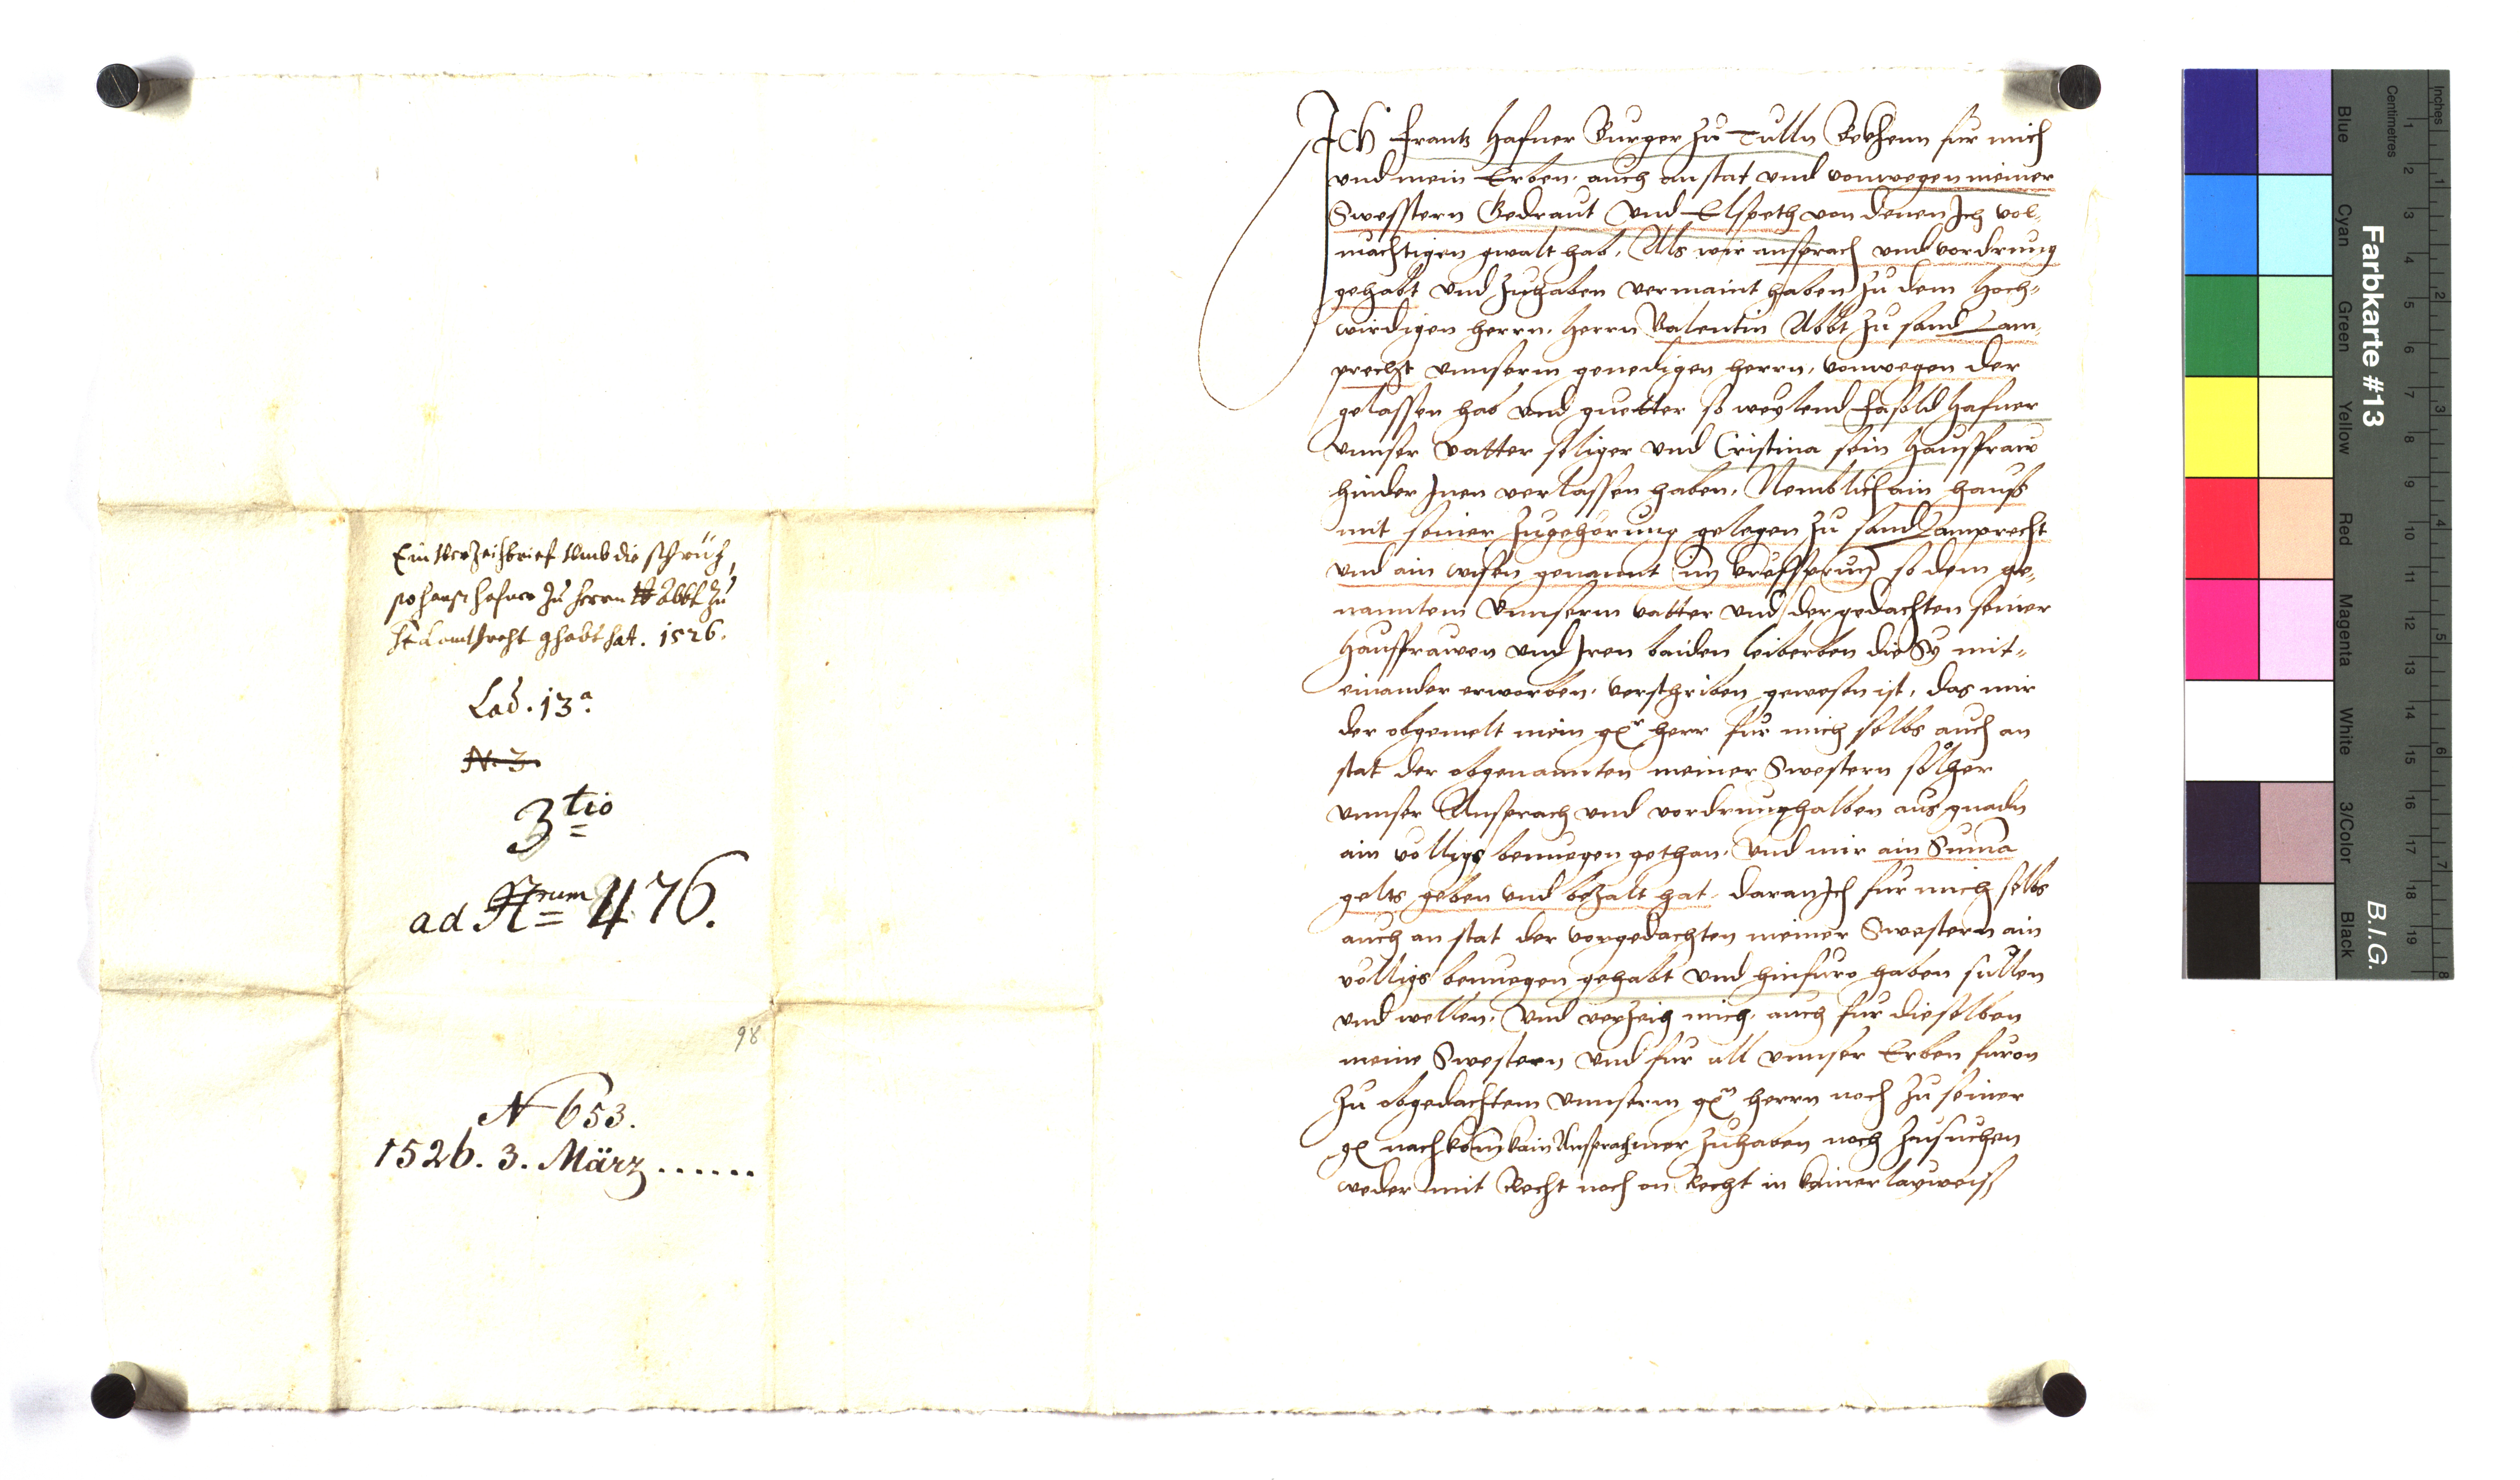 Ein verzeihbrief umb die sprüch,
so franz hafner zu herrn Abbt zu
St Lamprecht ghabt hat. 1526.
Lad. 13a.
N. 3.
3tio
ad Nrum 476.
98
N 653.
1526. 3. März ......
Ich Frantz Hafner Burger zu Tulln Bekhenn fur mich
vnd mein Erben, auch anstat vnd vonwegen meiner
Swesstern Gedraut vnd Elspeth von denen Ich vol-
machtigen gwalt hab, Als wir ansprach vnd vordrung
gehabt vnd zuhaben vermaint haben zu dem Hoch-
wirdigen herrn, Herrn Valentin Abbt zu sand Lam-
precht vnnserm genedigen herrn, vonwegen der
gelassen hab vnd guetter so weylend Fasold Hafner
vnnser vatter seliger vnd Cristina sein Hausfraw
hinder Inen verlassen haben, Nemblich ain hauss
mit seiner zugehorung gelegen zu sand Lamprecht
vnd ain wisen genannt im so dem ge-
nanntem vnnserm vatter vnd der gedachten seiner
Hausfrawen vnd Iren baiden leiberben die Sy mit-
einander erworben, verschriben gewesen ist, das mir
der obgemelt mein gr herr fur mich selbs auch an
stat der obgenannten meiner Swestern solher
vnnser Ansprach vnd vordrunghalben aus gnadn
ain volligs benuegen gethan, Vnd mir ain Suma
gelts geben vnd bezalt hat, daran Ich fur mich selbs
auch an stat der vorgedachten meiner Swestern ain
volligs benuegen gehabt vnd hinfuro haben sullen
vnd wellen, Vnd verzeih mich, auch fur dieselben
meine Swestern vnd fur all vnnser Erben furon
zu obgedachtem vnnserm gn herrn noch zu seiner
g nachkom kain Ansprach mer zuhaben noch zusuchen
weder mit Recht noch on Recht in kainerlayweiß